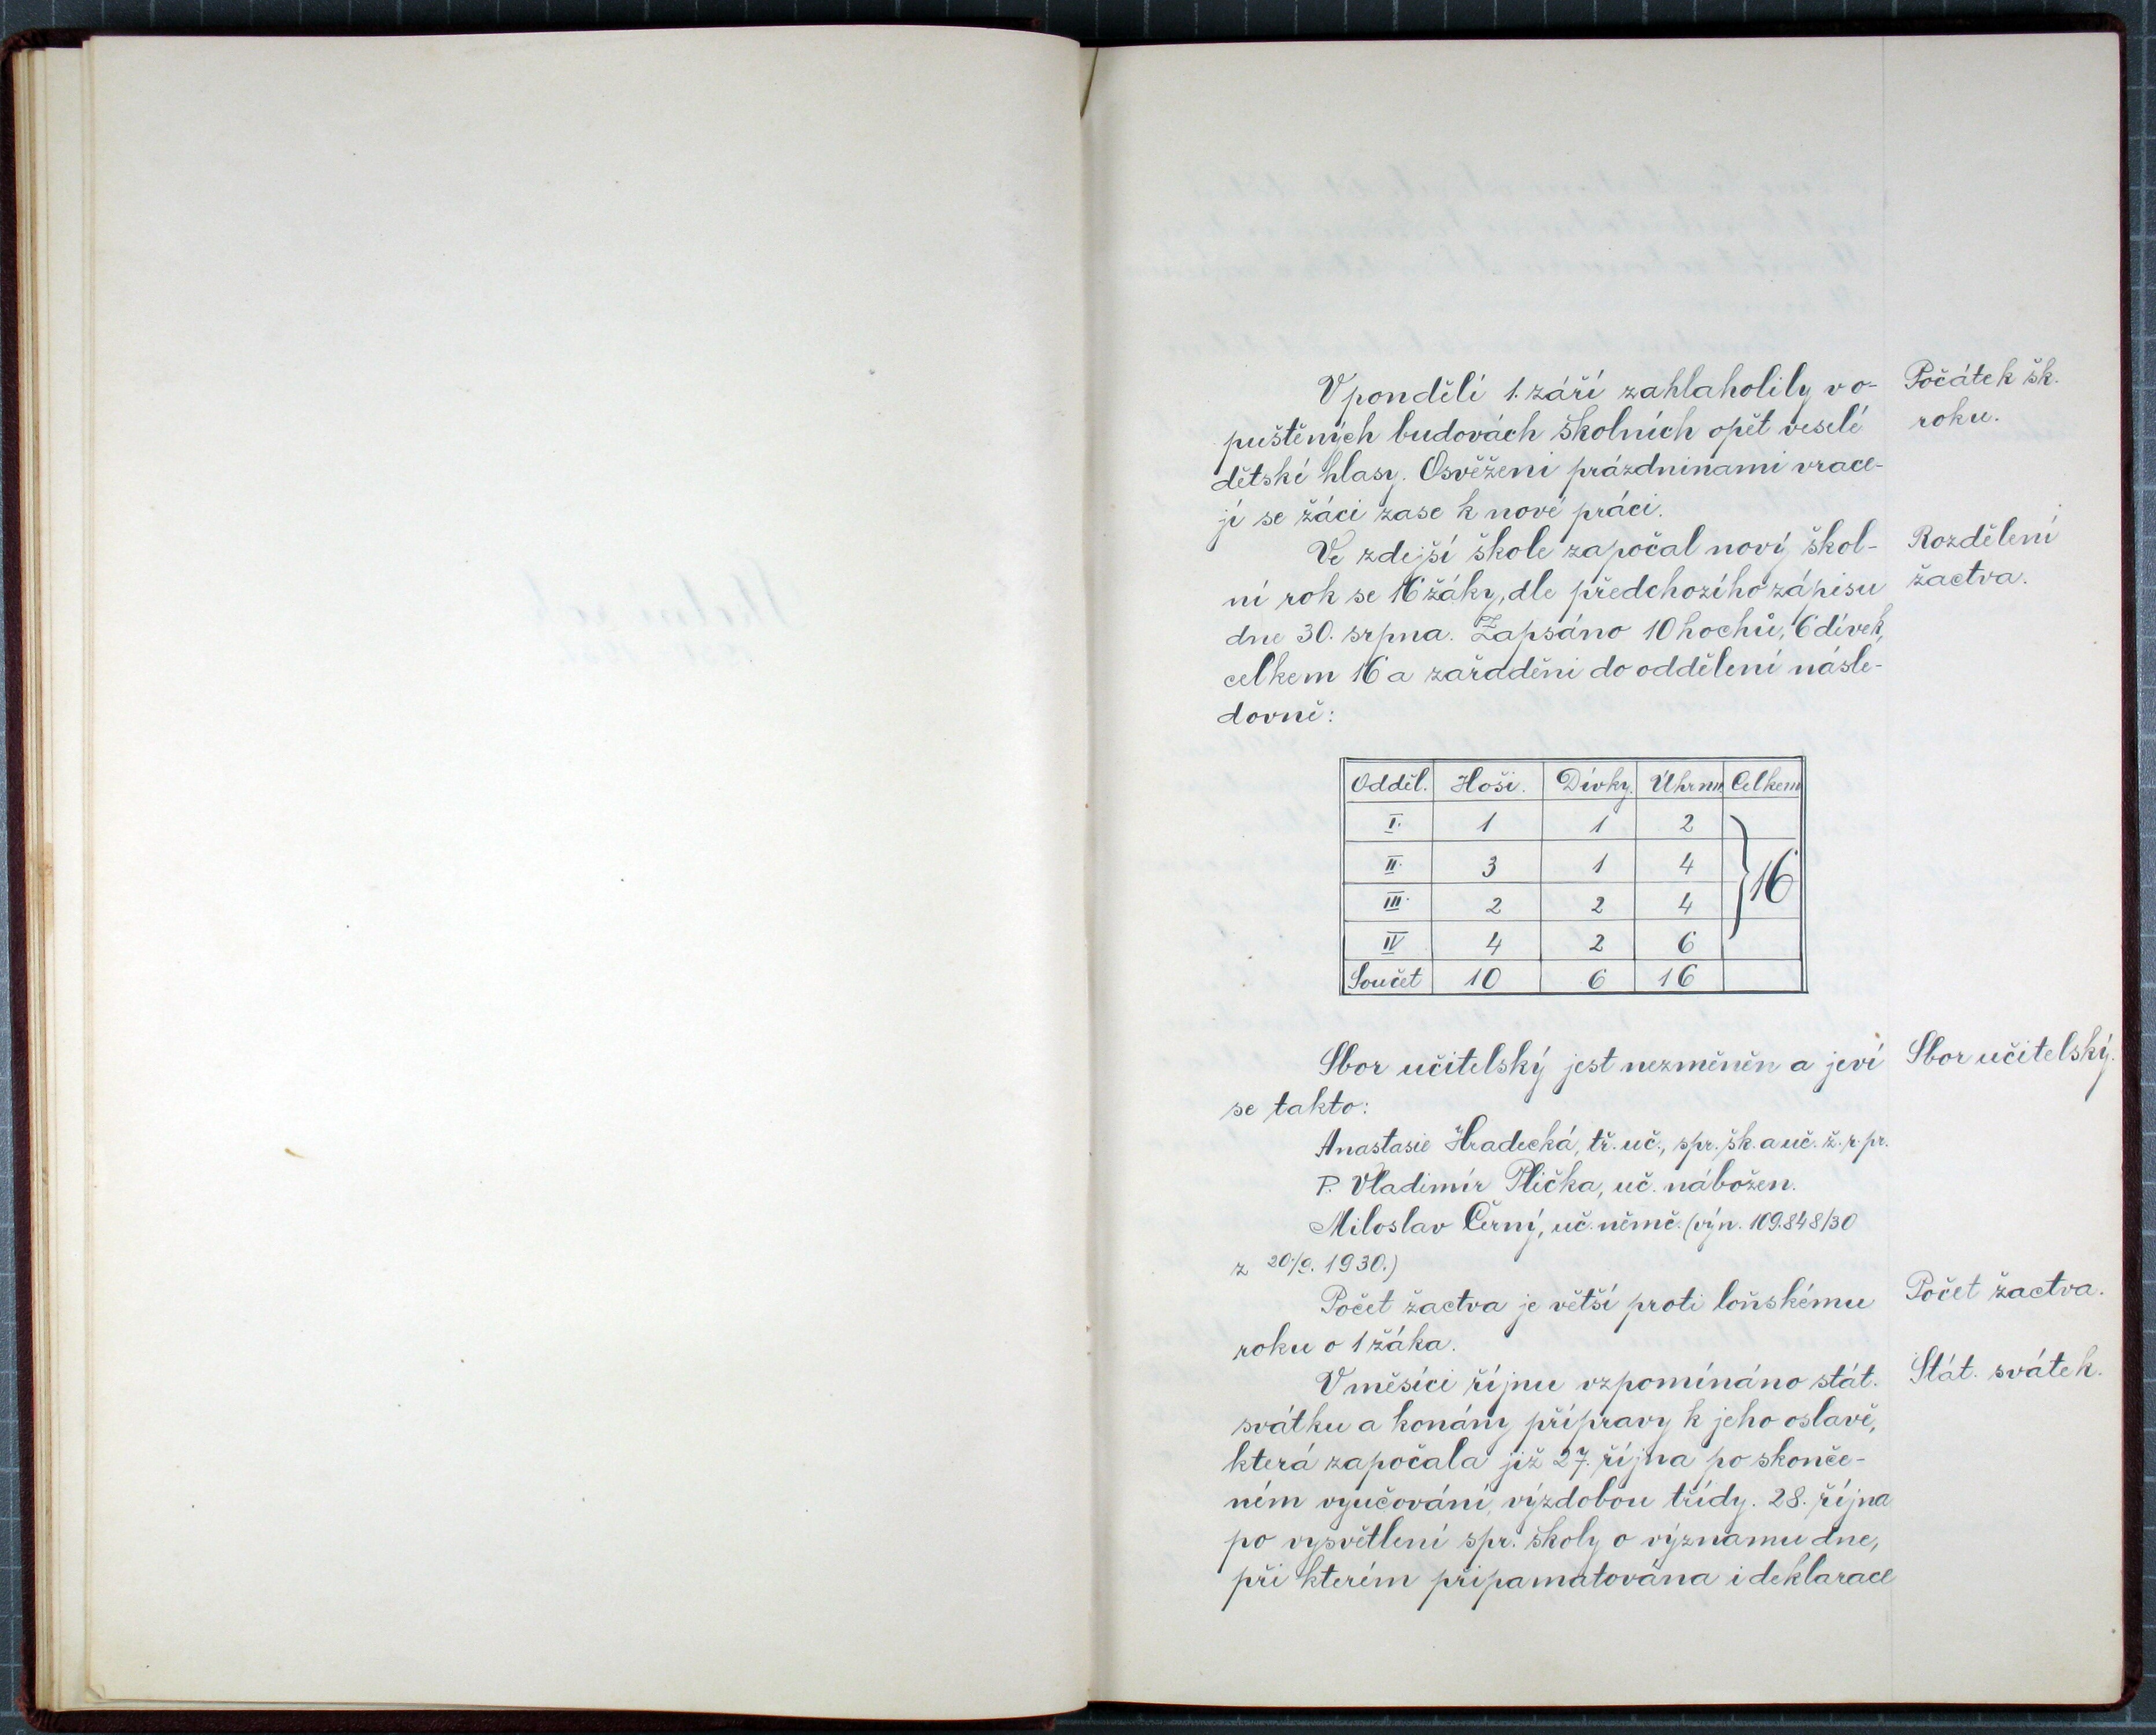 V pondělí 1. září zahlaholily v o-
puštěných budovách školních opět veselé
dětské hlasy. Osvěženi prázdninami vrace-
jí se žáci zase k nové práci.
Počátek šk.
roku.
Ve zdejší škole započal nový škol-
ní rok se 16 žáky, dle předchozího zápisu
dne 30. srpna. Zapsáno 10 hochů, 6 dívek,
celkem 16 a zařaděni do oddělení násle-
dovně:
Rozdělení
žactva.
Odděl. Hoši. Dívky. Úhrnn Celkem
I. 1 1 2
II. 3 1 4
III. 2 2 4
IV 4 2 6
} 16
Součet 10 6 16
Sbor učitelský jest nezměněn a jeví
se takto:
Sbor učitelský.
Anastasie Hradecká, tř. uč., spr. šk. a uč. ž. r. pr.
P. Vladimír Plička, uč. nábožen.
Miloslav Černý, uč. němč. (výn. 109.848/30
z 1930.)
Počet žactva je větší proti loňskému
roku o 1 žáka.
Počet žactva.
V měsíci říjnu vzpomínáno stát.
svátku a konány přípravy k jeho oslavě,
která započala již 27. října po skonče-
ném vyučování, výzdobou třídy. 28. října
po vysvětlení spr. školy o významu dne,
při kterém připamatována i deklarace
Stát. svátek.